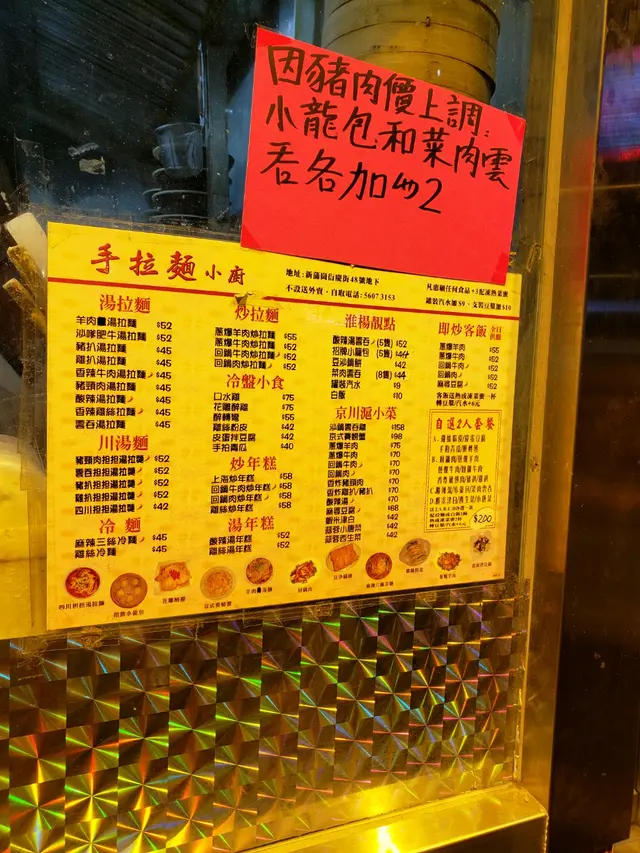 因豬肉價上調:
小龍包和菜肉雲
吞各加$2
手拉麵小廚
地址:新蒲崗衍慶街48號地下
不設送外賣,自取電話:5607 3153
凡惠顧任何食品+3配凍熱菜蜜
罐裝汽水加$9、支裝豆漿加$10
湯拉麵
羊肉 湯拉麵 $52
沙嗲肥牛湯拉麵 $52
豬扒湯拉麵 $45
雞扒湯拉麵 $45
香辣牛肉湯拉麵 $45
豬頸肉湯拉麵 $45
酸辣湯拉麵 $45
香辣雞絲拉麵 $45
雲吞湯拉麵 $45
川湯麵
豬頸肉担担湯拉麵 $52
雲吞担担湯拉麵 $52
豬扒担担湯拉麵 $52
雞扒担担湯拉麵 $52
四川担担湯拉麵 $42
冷麵
麻辣三絲冷麵 $45
雞絲冷麵 $45
炒拉麵
蔥爆羊肉炒拉麵 $55
蔥爆牛肉炒拉麵 $52
回鍋牛肉炒拉麵 $52
回鍋肉炒拉麵 $52
冷盤小食
口水雞 $75
花雕醉雞 $75
醉轉彎 $55
雞絲粉皮 $42
皮蛋拌豆腐 $42
手拍青瓜 $40
炒年糕
上海炒年糕 $58
回鍋牛肉炒年糕 $58
回鍋肉炒年糕 $58
雞絲炒年糕 $58
湯年糕
酸辣湯年糕 $52
雞絲湯年糕 $52
淮楊靚點
酸辣湯雲吞 (5隻) $52
招牌小籠包 (5隻) $44
豆沙鍋餅 $42
菜肉雲吞 (8隻) $44
罐裝汽水 $9
白飯 $10
京川滬小菜
沙鍋雲吞雞 $158
京式賽螃蟹 $98
蔥爆羊肉 $75
蔥爆牛肉 $70
回鍋牛肉 $70
回鍋肉 $70
香炸豬頸肉 $70
香炸雞扒/豬扒 $70
酸辣湯 $70
麻婆豆腐 $68
蝦米津白 $42
蒜蓉小唐菜 $42
蒜蓉西生菜 $42
即炒客飯 全日供應
蔥爆羊肉 $55
蔥爆牛肉 $52
回鍋牛肉 $52
回鍋肉 $52
麻婆豆腐 $52
客飯送熱或凍菜蜜一杯
轉豆漿/汽水+6元
自選2人套餐
$200